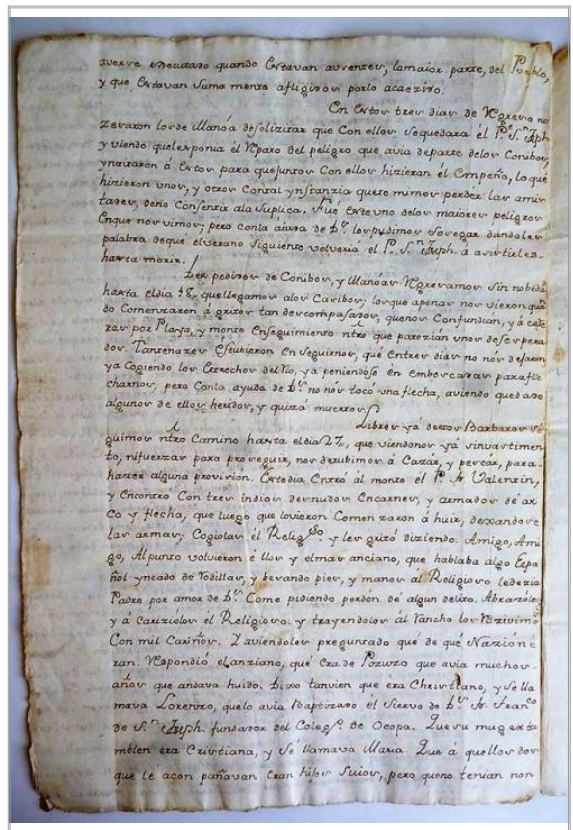 averse executado quando Estavan ausentes, lamaior parte, del Pueblo,
y que Estavan suma mente afligidos porlo acaezido.
En Estos tres dias de Regreso no
zesaron losde Manòa desolizitar que Con ellos sequedara èl Pe. Sn. Jph
y viendo quelesponia èl Reparo del peligro que avia departe delos Conibos,
ynstaron á Estos para quejuntos Con ellos hizieran el Empeño, lo què
hizieron unos, y otros Contal ynstanzia que temimos perder las amis
tades, deno Consentir ala Suplica. Fuè Este uno delos maiores peligros
Enque nos vimos, pero conla aiuda de Ds. los pudimos Sosegar dandoles
palabra deque elverano Siguiente volveria èl P. Sn. Jph. á asistirles
hasta morir.
Des pedidos de Conibos, y Manóas Regresamos Sin nobedad
hasta eldia 18,, quellegamos alos Caribos, losque apenas nos vieron quan
do Comenzaron á gritos tan descompasados, quenos Confundian, y á
por Playa, y monte Enseguimiento ntro que parezian unos desespera
dos. Tantenazes Estubieron En seguirnos, que Entres dias no nos dejaron,
ya Cogiendo los Estrechos del Rio, ya poniendose En emboscadas parafle
charnos, pero Conla ayuda de Ds. no nos tocó una flecha, aviendo quedado
algunos de ellos heridos, y quizá muertos.
Libres yá destos Barbaros se
guimos ntro Camino hasta eldia 27,, que viendonos yá sinvastimen
to, nifuerzas para proseguir, nos detubimos á Cazár, y pescár, para
hazer alguna provision. Estedia Entró al monte el P. Fr. Valentin,
y Encontro Con tres indios desnudos Encarnes, y armados dé ar
co y flecha, que luego que lovieron Comenzaron á huir, dexandose
las armas, Cogiolas el Religso. y les gritó diziendo: Amigo, Ami
go, Alpunto volvieron ellos y elmas anciano, que hablaba algo Espa
ñol yncado de Rodillas, y besando pies, y manos al Religioso ledezia
Padre por amor de Ds. Como pidiendo perdón dé algun delito. Abrazólos
y á Carizidios el Religioso. y trayendolos al Rancho los Rezivimos
Con mil Cariños. Y aviendoles preguntado que de què Nazión é
ran. Respondiò elanziano, què Era de Pozuzo que avia muchos
años que andava huido. Dixo tanvien que era Christiano, y se lla
mava Lorenzo, quelo avia Baptizado èl Siervo de Ds. Fr. Franco
de Sn. Jph. fundador del Colegº. de Ocopa. Que su muger ta
mbien era Cristiana, y Sé llamava Maria. Que á quellos dos
que le acon pañavan Eran hijos Suios, pero queno tenian non